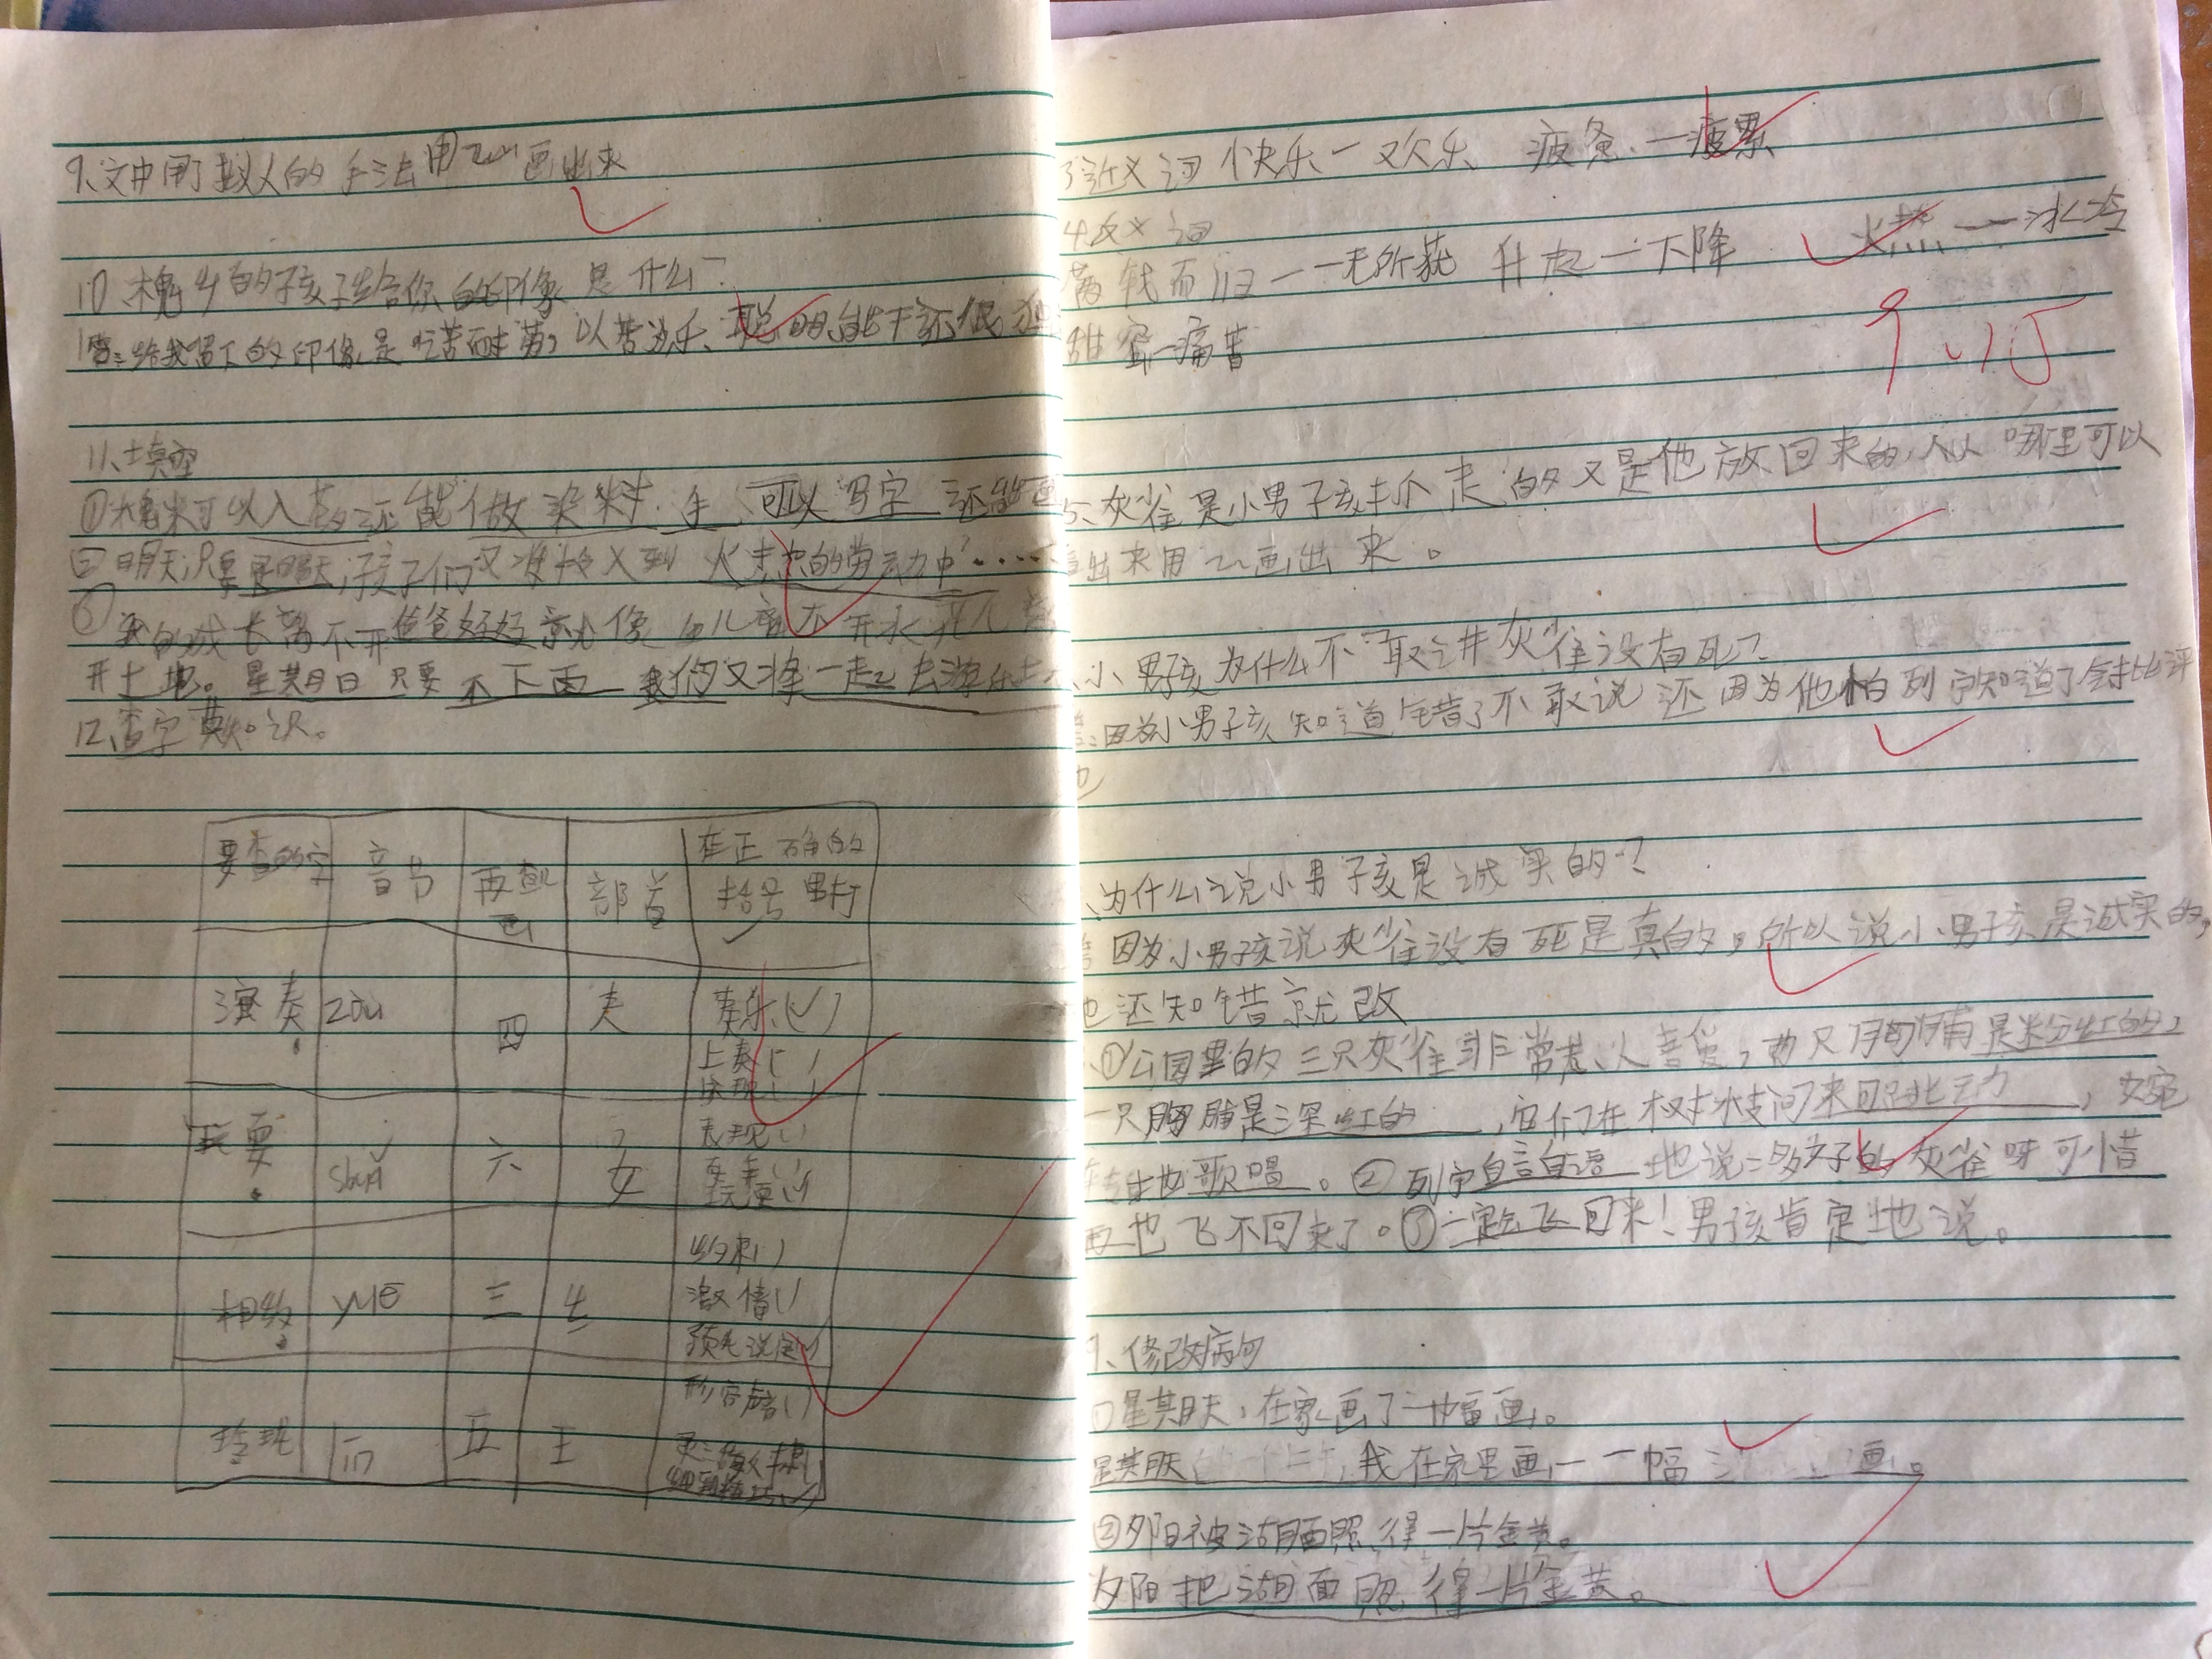 9、文中用了拟人的手法用﹏画出来
10、槐乡的孩子给你的印像是什么?
答:给我留下的印像是吃苦耐劳,以苦为乐、聪明能干还很
11、填空
①槐米可以入药还能做染料.笔可以写字还能画
②明天,只要是晴天,孩子们又准投入到火热的劳动中……
③我的成长离不开爸爸妈妈就像鱼儿离不开水花儿离
开土地。星期日只要不下雨我们又将一起去游乐
12、查字典知识。
要查的字 音节 再查几画 部首 在正确的括号里打✓
演奏 zòu 四 夫 奏乐(✓)
上奏( )
表现( )
玩耍 shuǎ 六 女 表现( )
玩耍(✓)
相约 yuē 三 纟 约束( )
激情( )
预先说定(✓)
玲珑 lín 五 王
3近义词 快乐—欢乐 疲惫—疲累
4反义词
满载而归—一无所获 升起—下降 火热—冰冷
甜蜜—痛苦
9.15
5、灰雀是小男孩抓走的又是他放回来的,从哪里可以
看出来用﹏画出来。
小男孩为什么不敢讲灰雀没有死?
答:因为小男孩知道错了不敢说还因为他怕列宁知道了会批评
他
、为什么说小男孩是诚实的?
答因为小男孩说灰雀没有死是真的,所以说小男孩是诚实的,
他还知错就改
①公园里的三只灰雀非常惹人喜爱,两只胸脯是粉红的,
一只胸脯是深红的,它们在树枝间来回跳动,婉
转地歌唱。②列宁自言自语地说:多好的灰雀呀可惜
再也飞不回来了。③一定会飞回来!男孩肯定地说。
9、修改病句
①星期天,在家画了一幅画。
星期天,我在家里画一幅画。
②夕阳被湖面照得一片金黄。
夕阳把湖面照得一片金黄。